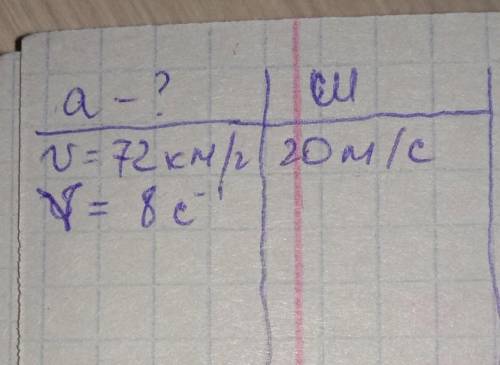 a - ? СИ
v = 72 км/ч 20 м/с
V = 8 с⁻¹